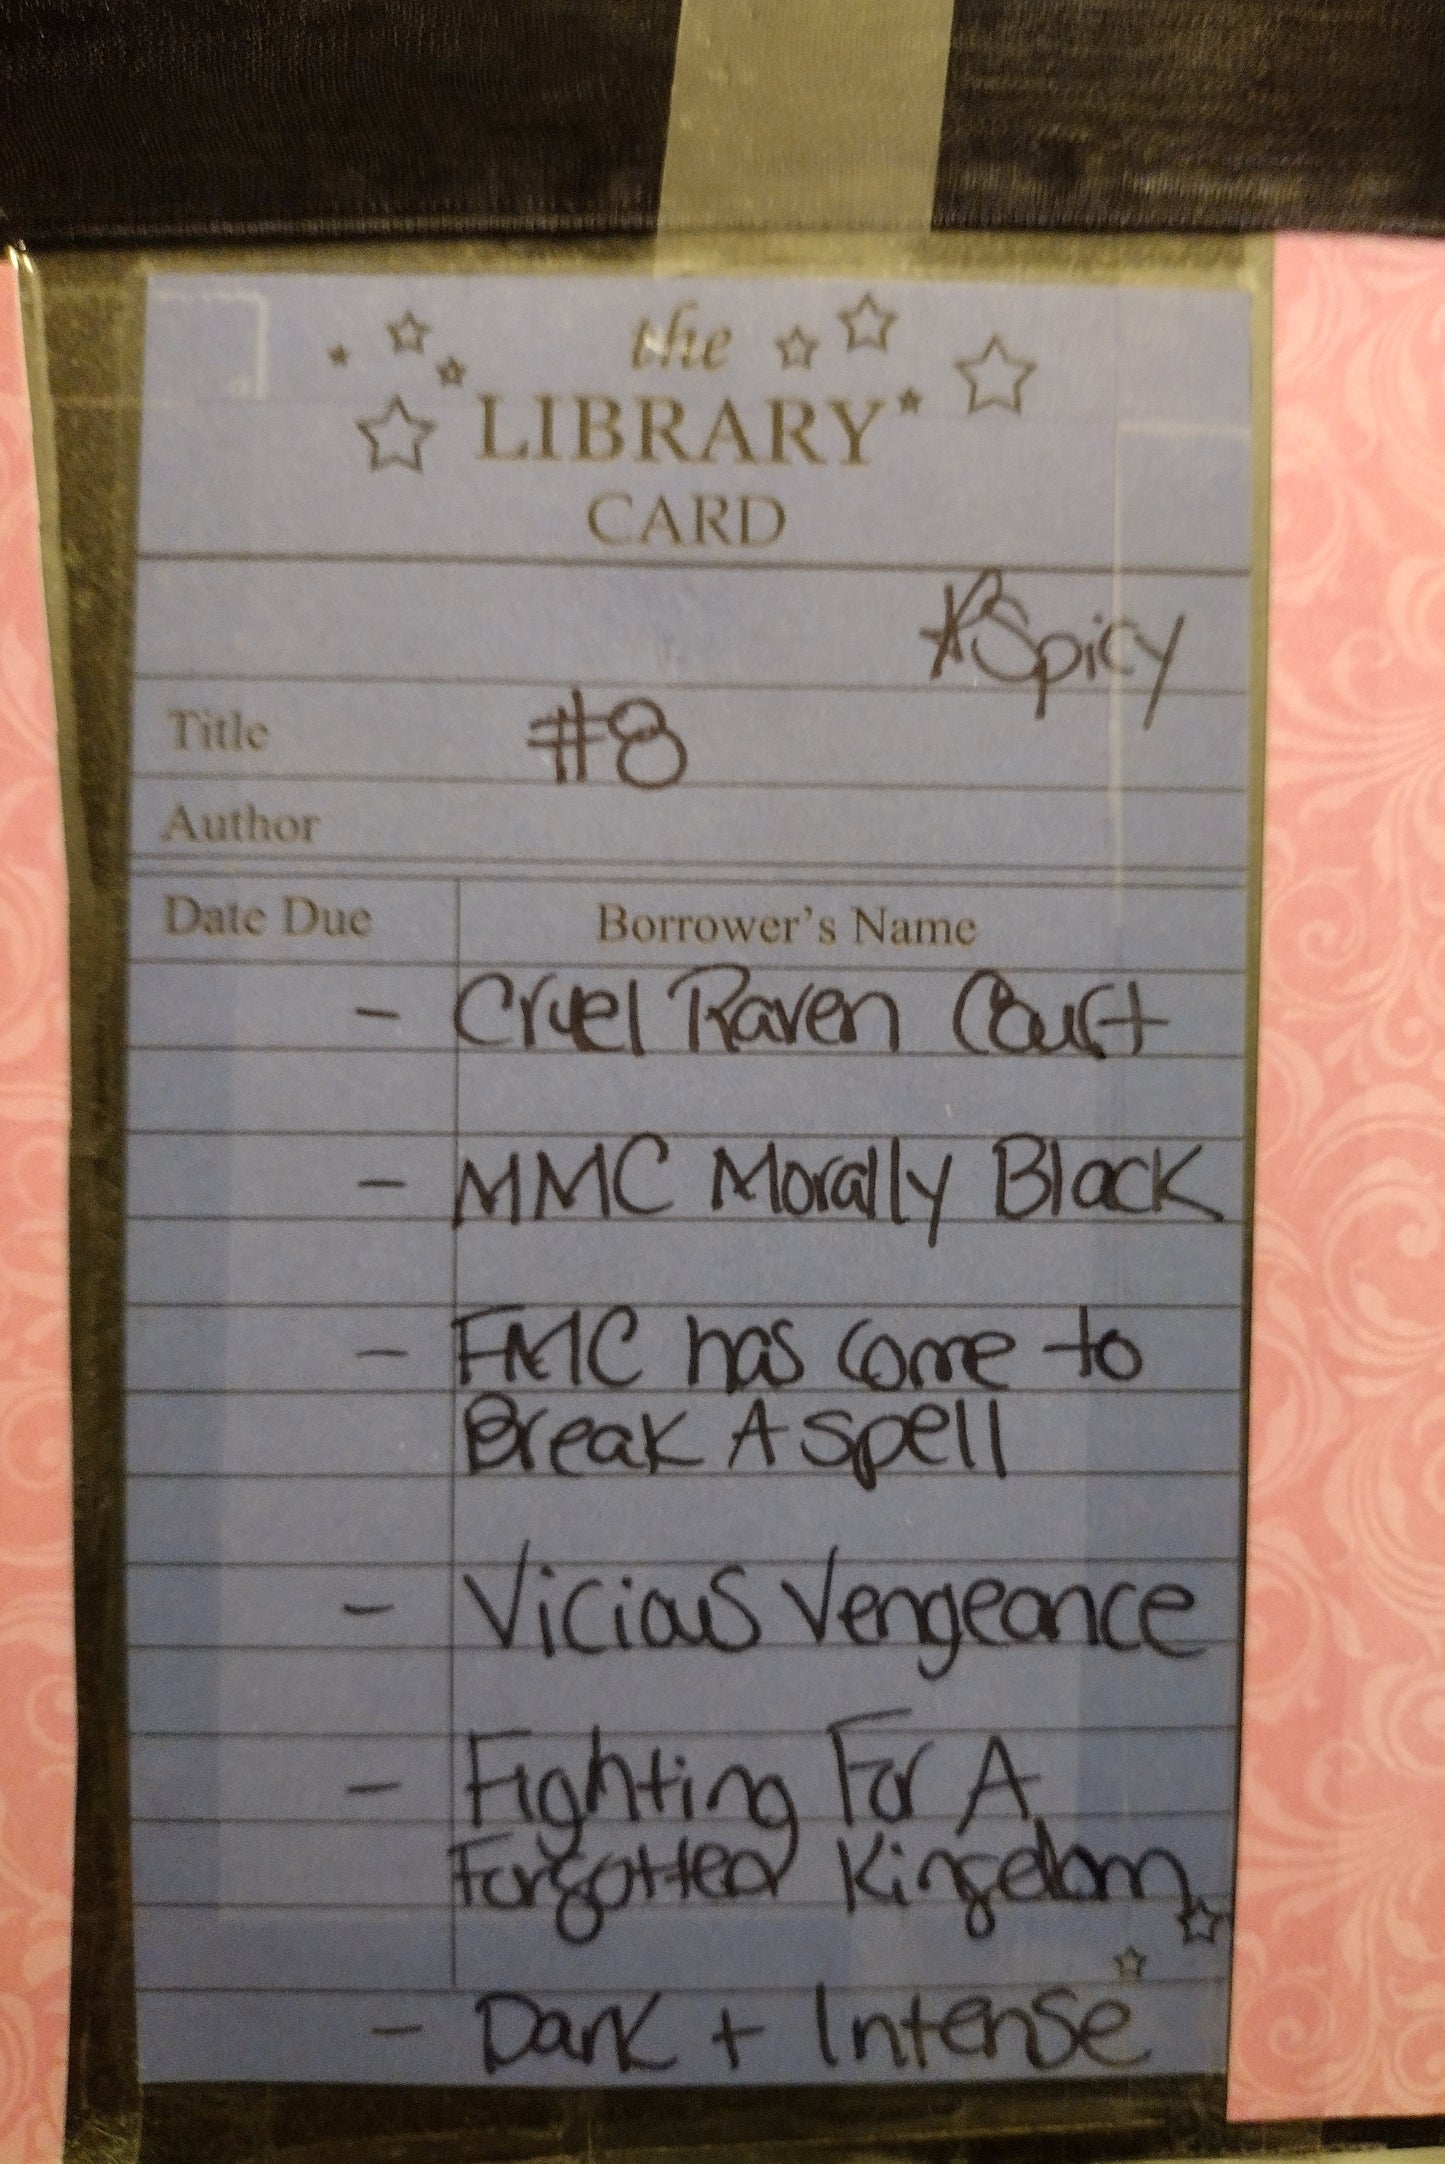 the
LIBRARY
CARD
*Spicy
Title #8
Author
Date Due Borrower's Name
- Cruel Raven Court
- MMC Morally Black
- FMC has come to
Break A spell
- Vicious Vengeance
- Fighting For A
Forgotten Kingdom
- Dark + Intense